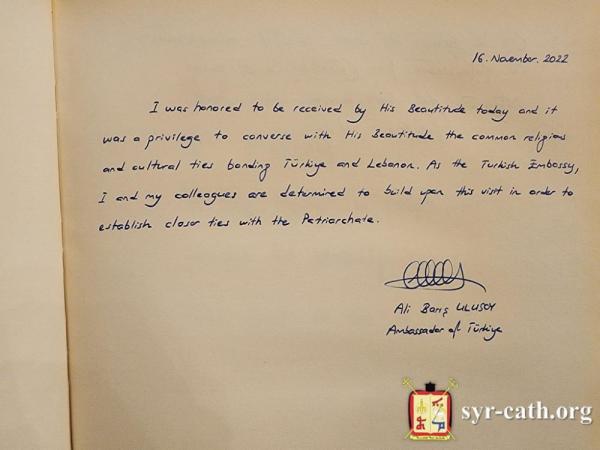 16. November. 2022
I was honored to be received by His Beautitude today and it
was a privilege to converse with His Beautitude the common religious
and cultural ties bonding Türkiye and Lebanon. As the Turkish Embassy,
I and my colleagues are determined to build upon this visit in order to
establish closer ties with the Patriarchate.
Ali Barış ULUSOY
Ambassador of Türkiye
syr-cath.org